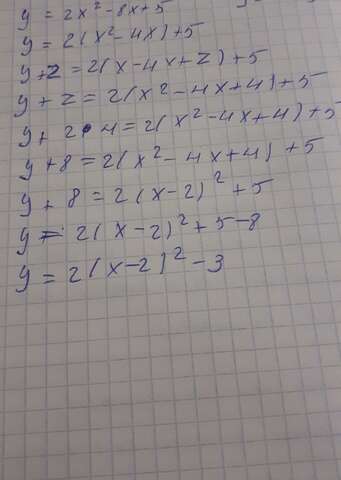 y = 2x² - 8x + 5
y = 2(x² - 4x) + 5
y + 2 = 2(x - 4x + 2) + 5
y + 2 = 2(x² - 4x + 4) + 5
y + 2 • 4 = 2(x² - 4x + 4) + 5
y + 8 = 2(x² - 4x + 4) + 5
y + 8 = 2(x - 2)² + 5
y = 2(x - 2)² + 5 - 8
y = 2(x - 2)² - 3